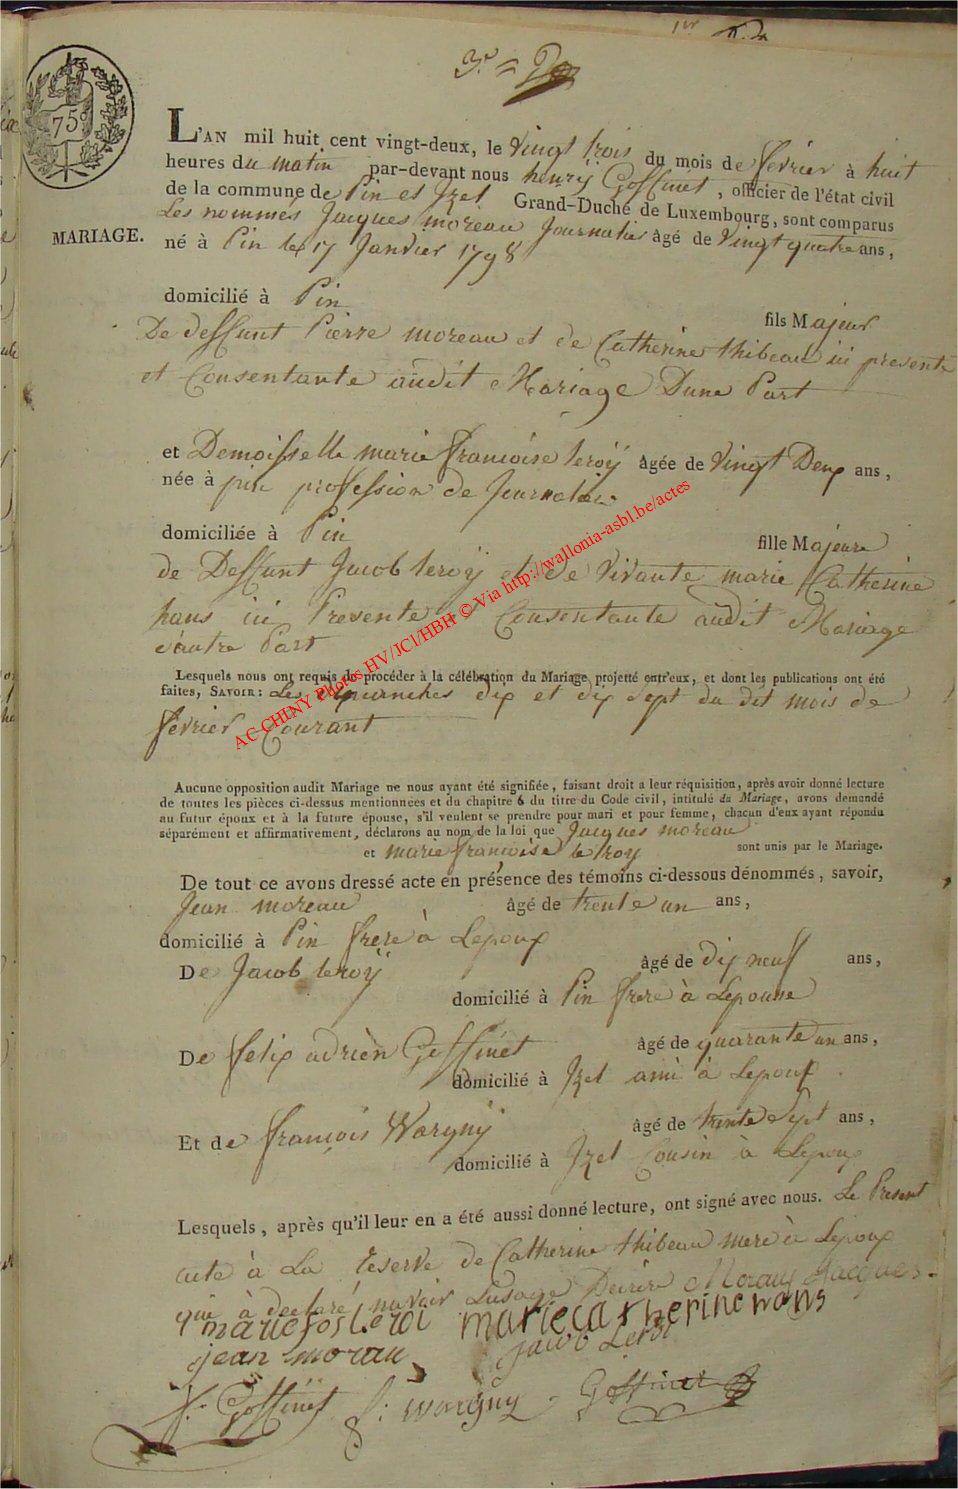 1er
3e
75
L'AN mil huit cent vingt-deux, le vingt trois du mois de fevrier à huit
heures du matin par-devant nous henrÿ Goffinet, officier de l'état civil
de la commune de Pin et Izel Grand-Duché de Luxembourg, sont comparus
Les nommés Jacques moreau Journalier âgé de Vingt quatre ans,
MARIAGE.
né à Pin le 17 Janvier 1798
domicilié à Pin
fils Majeur
De deffunt Pierre moreau et de Catherine thibeau ici presente
et Consentante audit Mariage Dune Part
et Demoisselle marie francoise leroÿ âgée de vingt Deux ans,
née à pin profession de Journaliere
domiciliée à Pin
fille Majeure
de Deffunt Jacob leroÿ et de Vivante marie Catherine
hans ici Presente et Consentante audit Mariage
d'autre Part
Lesquels nous ont requis de procéder à la célébration du Mariage projetté entr'eux, et dont les publications ont été
faites, SAVOIR: Les Dimanches dix et dix sept du dit mois de
fevrier Courant
AC CHINY Photos HV/JCI/HBH © Via http://wallonia-asbl.be/actes
Aucune opposition audit Mariage ne nous ayant été signifiée, faisant droit a leur réquisition, après avoir donné lecture
de toutes les pièces ci-dessus mentionnées et du chapitre 6 du titre du Code civil, intitulé du Mariage, avons demandé
au futur époux et à la future épouse, s'il veulent se prendre pour mari et pour femme, chacun d'eux ayant répondu
séparément et affirmativement, déclarons au nom de la loi que Jacques moreau
et marie francoise le roy sont unis par le Mariage.
De tout ce avons dressé acte en présence des témoins ci-dessous dénommés, savoir,
Jean moreau âgé de trente un ans,
domicilié à Pin frere à Lepoux
De Jacob leroÿ âgé de dix neuf ans,
domicilié à Pin frere à Lepouse
De felix adrièn Goffinet âgé de quarante un ans,
domicilié à Izel ami à Lepoux
Et de francois Wargnÿ âgé de trente Sept ans,
domicilié à Izel Cousin à Lepoux
Lesquels, après qu'il leur en a été aussi donné lecture, ont signé avec nous. Le Present
acte à La reserve de Catherine thibeau mere à Lepoux
qui à declaré navoir Lusage Decrire Moraux Jacques
marie fos Leroi marie catherine hans
jean morau Jacob Leroi
f. Goffinet f: wargny Goffinet